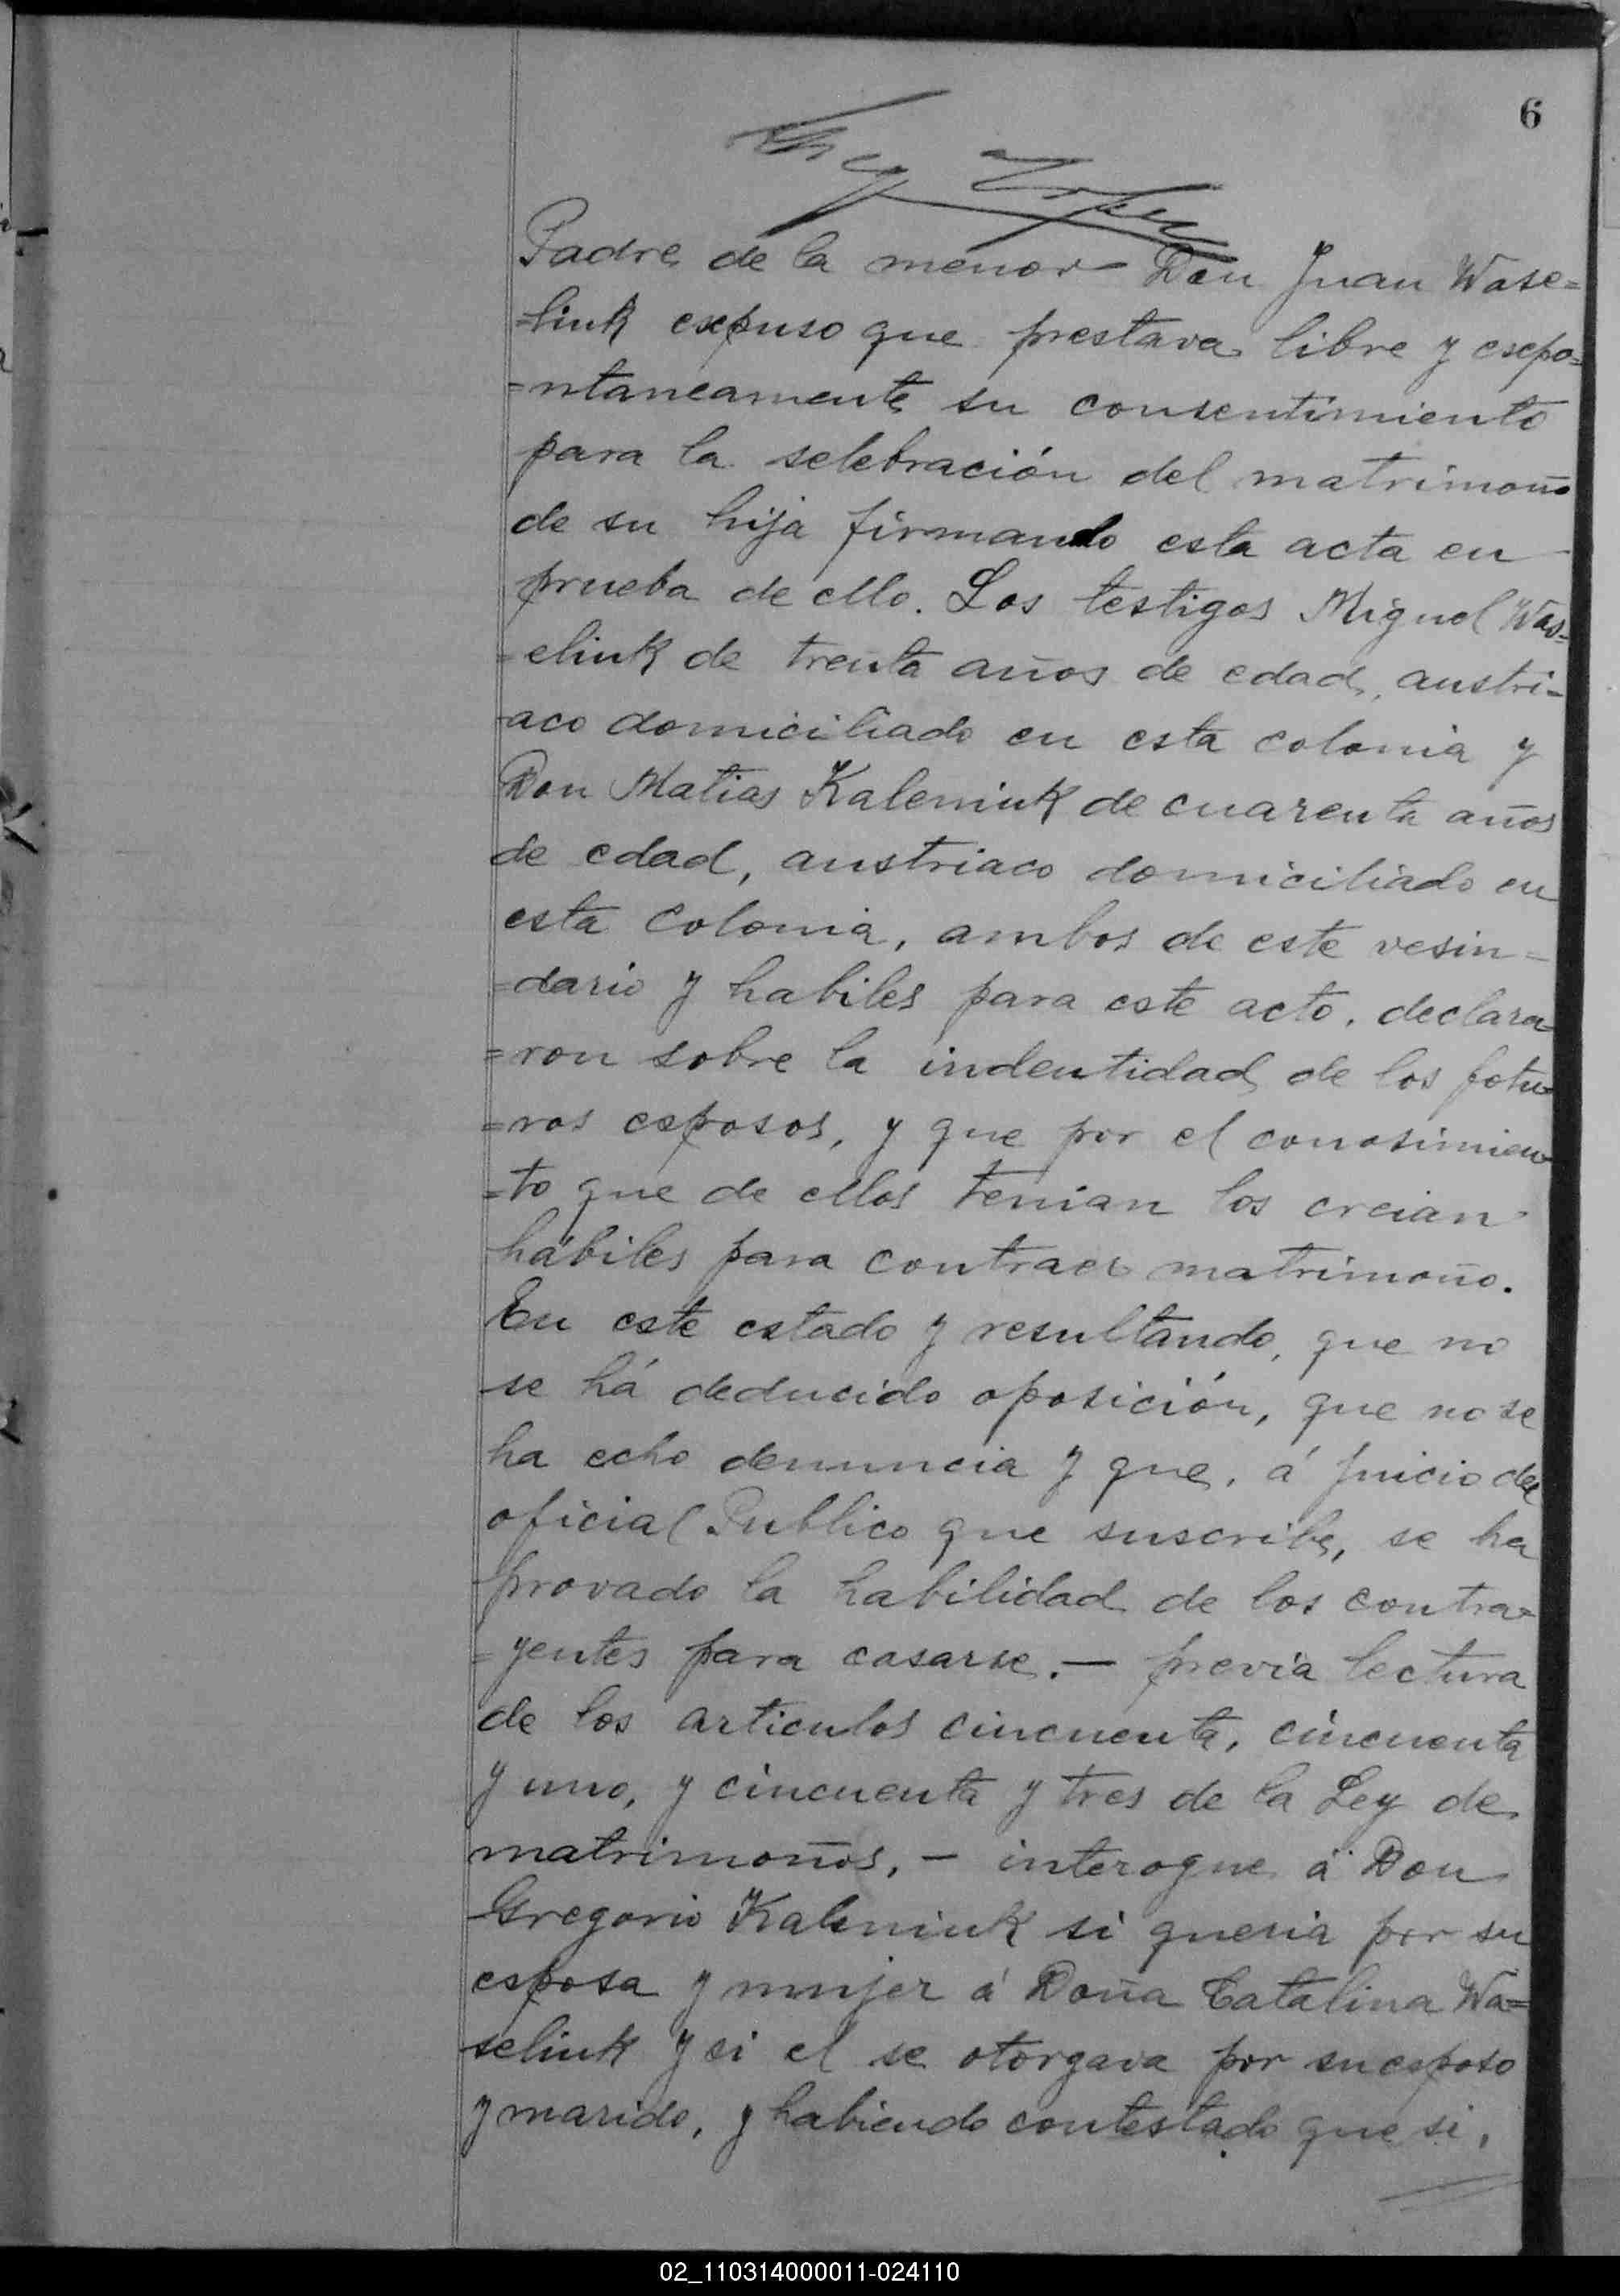 6
Padre de la menor Don Juan Wase=
=liuk esepuso que prestava libre y esepo=
=ntaneamente su consentimiento
para la selebración del matrimoño
de su hija firmando esta acta en
prueba de ello. Los testigos Miguel Was=
=eliuk de treinta años de edad, austri-
aco domiciliado en esta colonia y
Don Matias Kaleniuk de cuarenta años
de edad, austriaco domiciliado en
esta Colonia, ambos de este vesin=
=dario y habiles para este acto, declara=
=ron sobre la indentidad de los fotu=
=ros esposos, y que por el conosimien=
=to que de ellos tenian los creian
hábiles para contraer matrimoño.
En este estado y resultando, que no
se há deducido oposición, que no se
ha echo denuncia y que, á juicio del
oficial Publico que suscribe, se ha
provado la habilidad de los contra=
=yentes para casarse.— previa lectura
de los articulos cincuenta, cincuenta
y uno, y cincuenta y tres de la Ley de
matrimoños,— interogue á Don
Gregorio Kaleniuk si queria por su
esposa y mujer á Doña Catalina Wa=
seliuk y si el se otorgava por su esposo
y marido, y habiendo contestado que si,
02_110314000011-024110